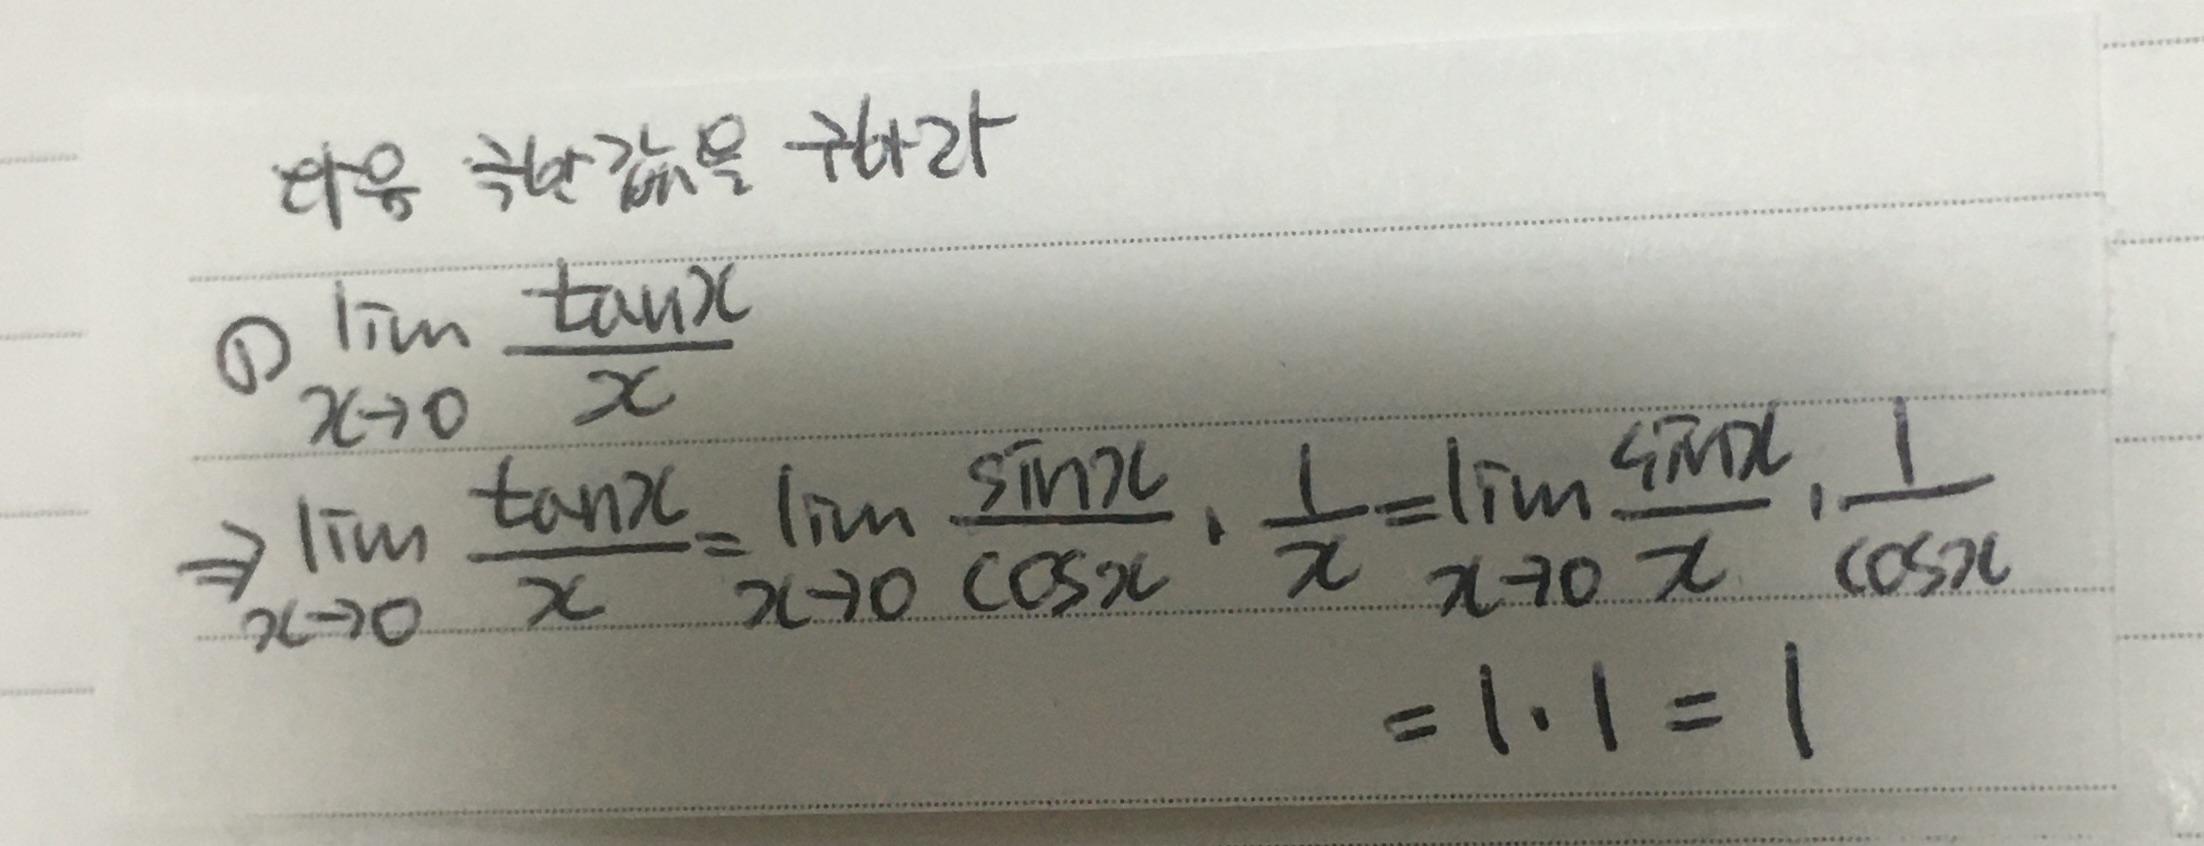 다음 극한값을 구하라
① lim x→0 tanx/x
⇒ lim x→0 tanx/x = lim x→0 sinx/cosx · 1/x = lim x→0 sinx/x · 1/cosx
= 1 · 1 = 1